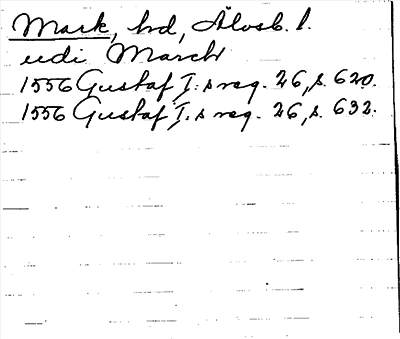 Mark, hd, Älvsb. l.
udi March
1556 Gustaf I:s reg. 26, s. 620.
1556 Gustaf I:s reg. 26, s. 632.